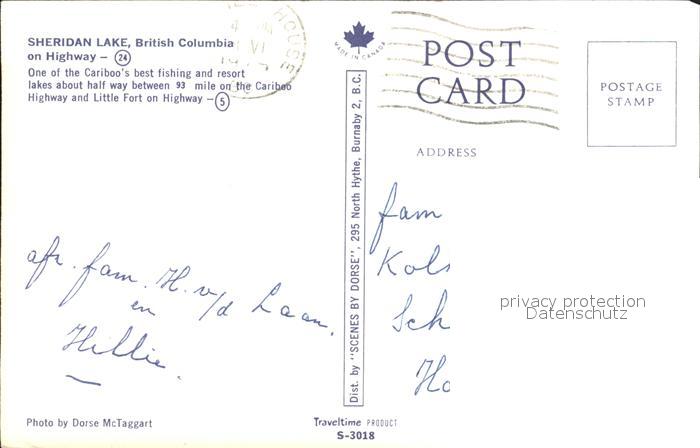 SHERIDAN LAKE, British Columbia
on Highway – 24
One of the Cariboo's best fishing and resort
lakes about half way between 93 mile on the Cariboo
Highway and Little Fort on Highway – 5
afz. fam. H. v/d Laan.
en
Hillie.
Photo by Dorse McTaggart
MADE IN CANADA
Dist. by "SCENES BY DORSE", 295 North Hythe, Burnaby 2, B.C.
Traveltime PRODUCT
S-3018
POST
CARD
ADDRESS
POSTAGE
STAMP
fam
Kols
Sch
Ho
privacy protection
Datenschutz
HOUSE
VI